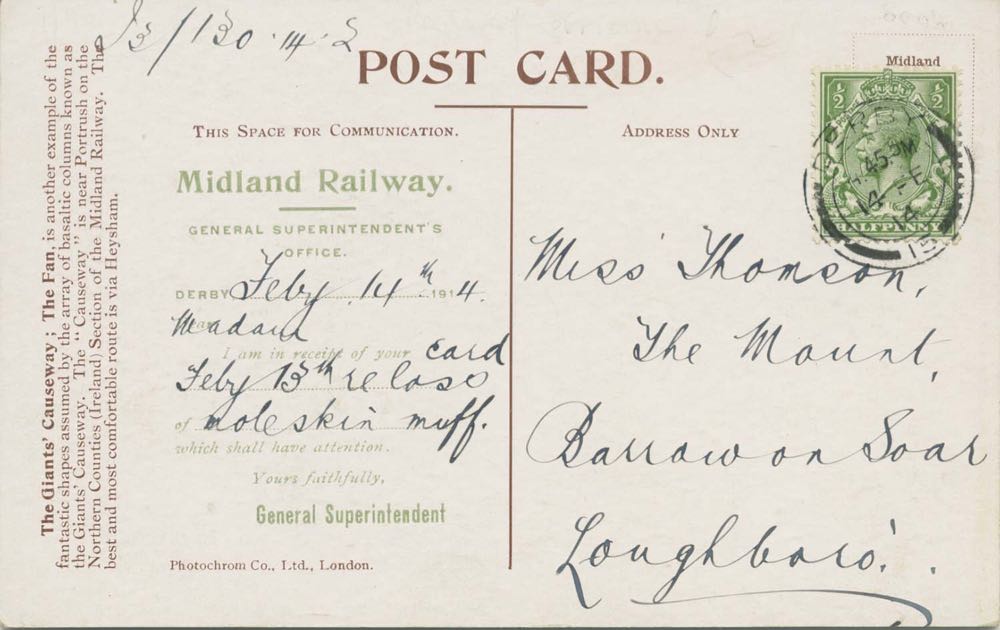 J3/130.14.2
POST CARD.
Midland
½ ½
HALFPENNY
DERBY
4.45 PM
14 FE
14
15
THIS SPACE FOR COMMUNICATION.
Midland Railway.
GENERAL SUPERINTENDENT'S
OFFICE.
DERBY Feby 14th 1914.
Madam
I am in receipt of your card
Feby 13th re loss
of moleskin muff.
which shall have attention.
Yours faithfully,
General Superintendent
Photochrom Co., Ltd., London.
ADDRESS ONLY
Miss Thomson,
The Mount,
Barrow on Soar
Loughboro'.
The Giants' Causeway; The Fan, is another example of the
fantastic shapes assumed by the array of basaltic columns known as
the Giants' Causeway. The "Causeway" is near Portrush on the
Northern Counties (Ireland) Section of the Midland Railway. The
best and most comfortable route is via Heysham.